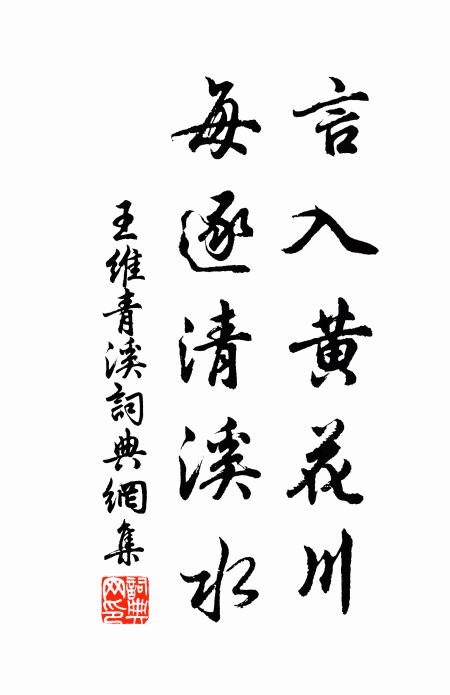 言入黄花川
每逐清溪水
王維青溪詞典網集
詞典